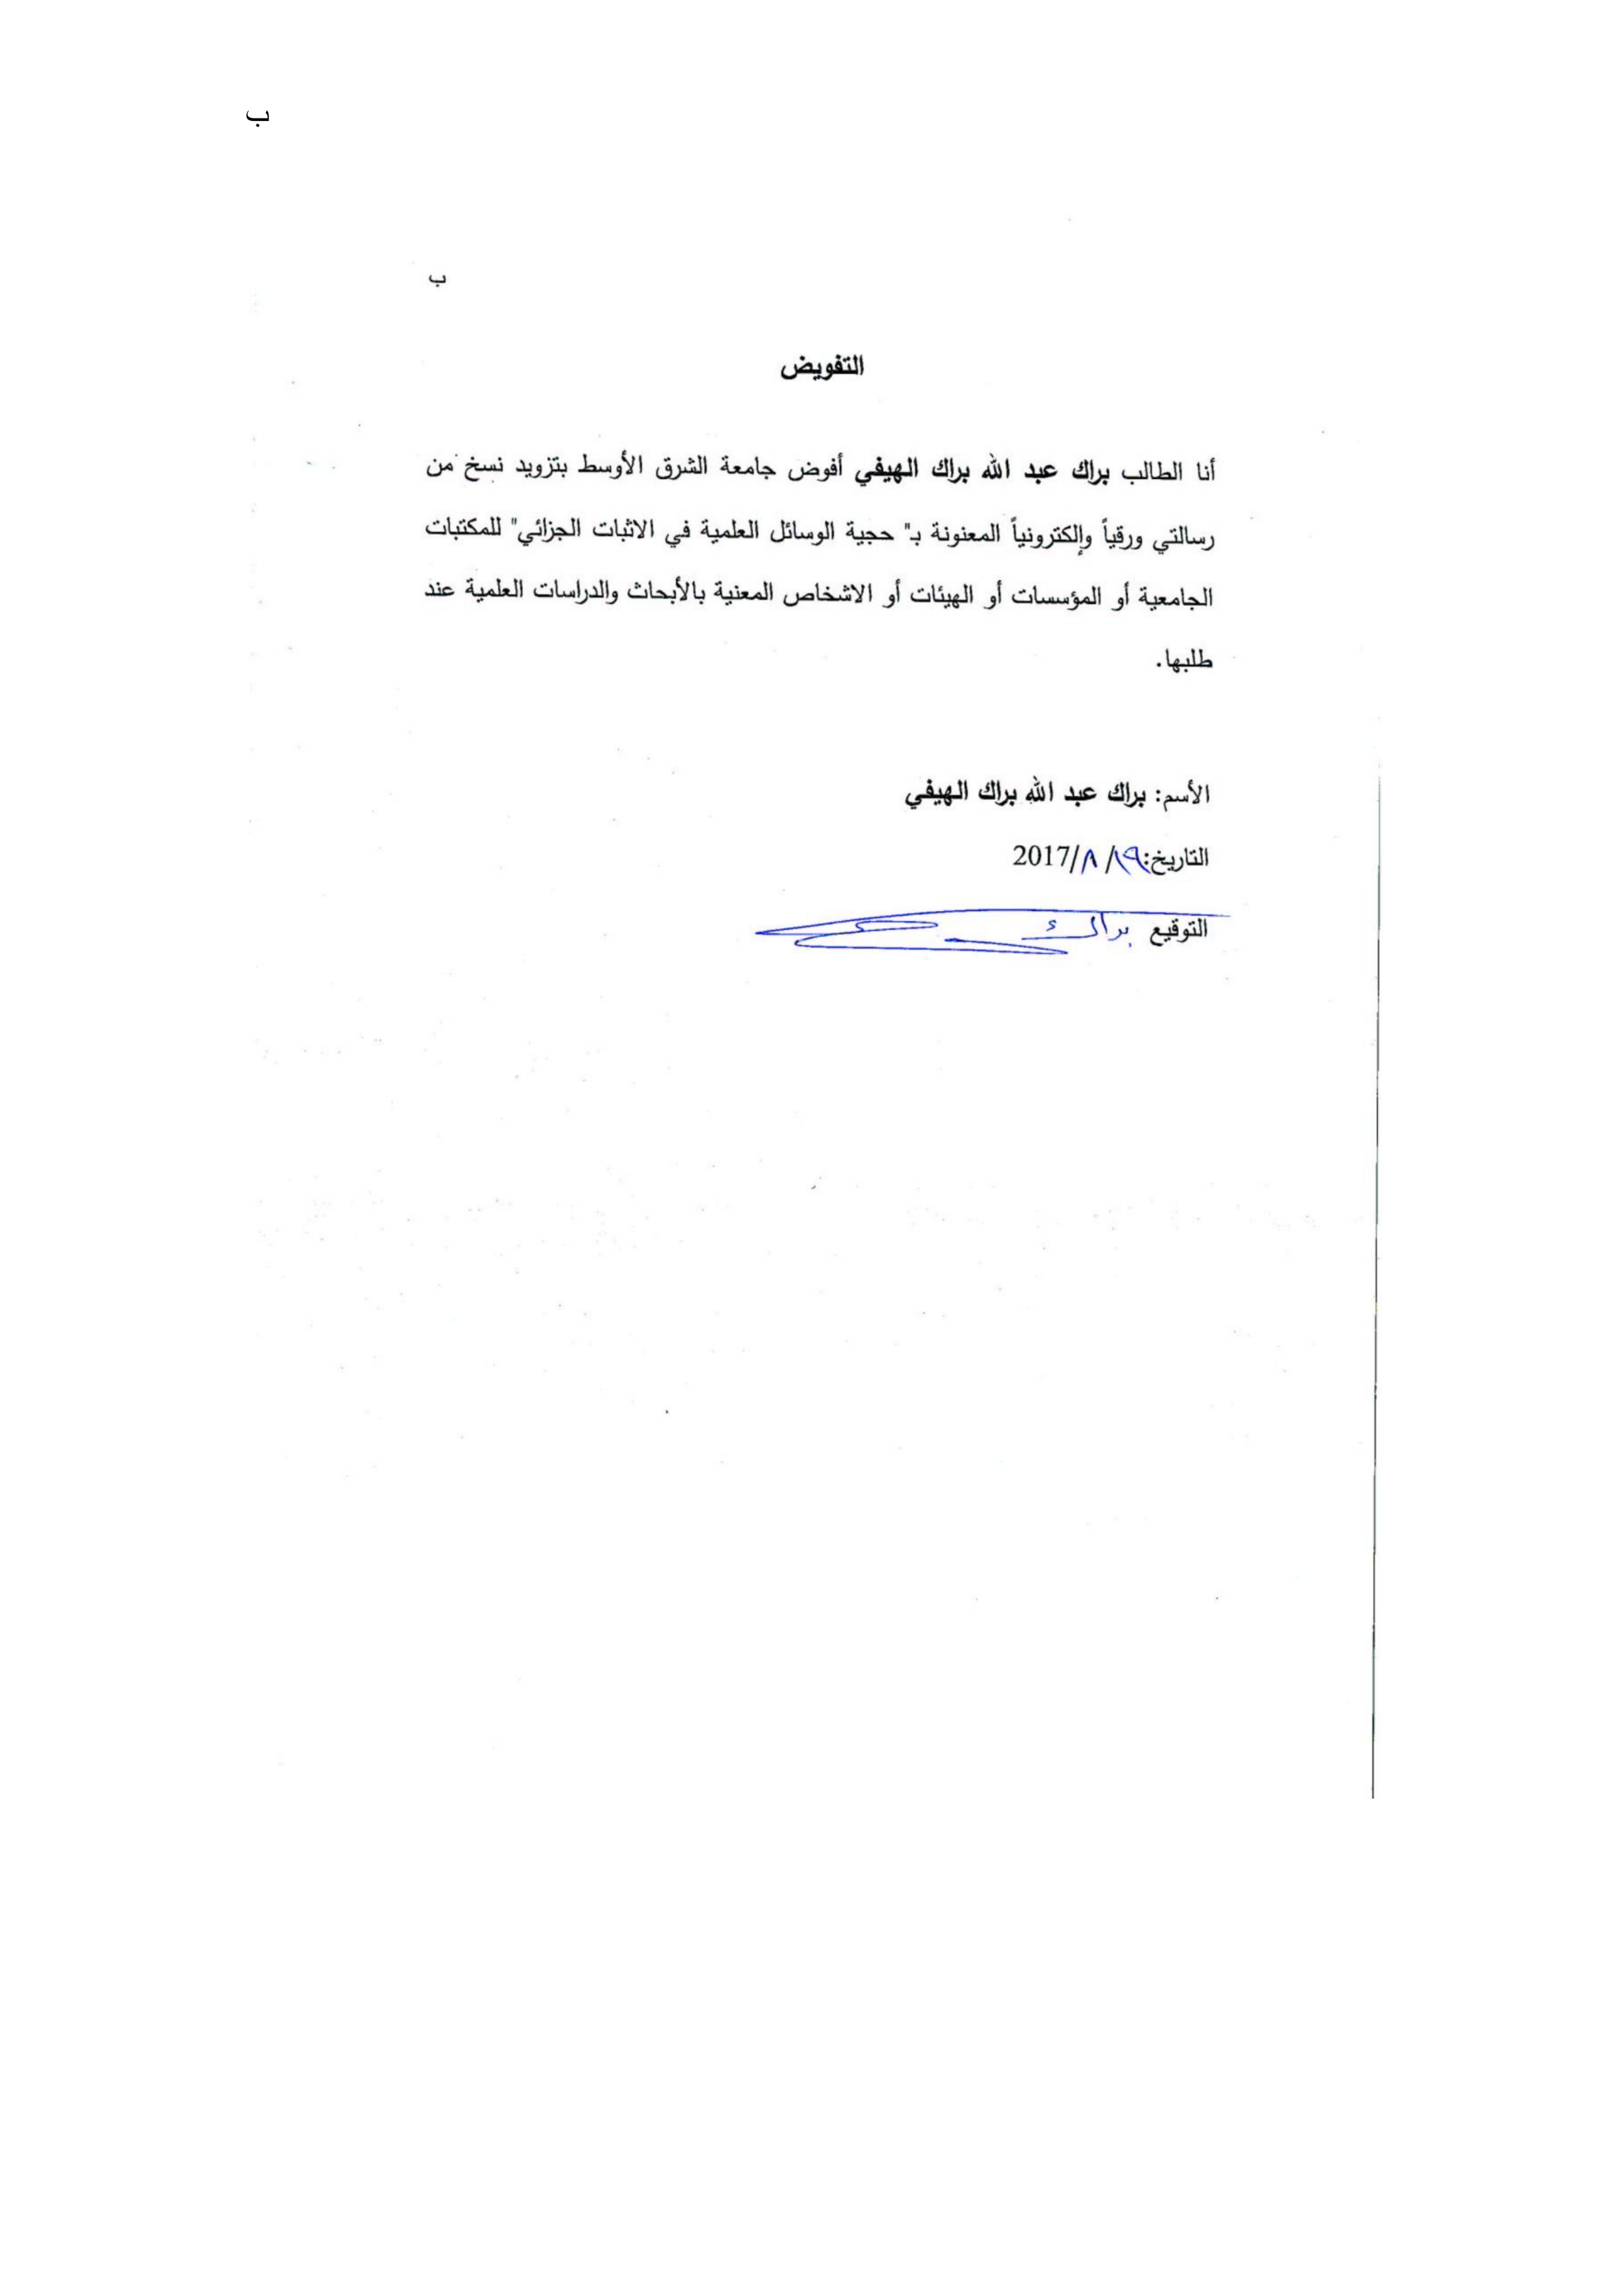 ب
ب
التفويض
أنا الطالب براك عبد الله براك الهيفي أفوض جامعة الشرق الأوسط بتزويد نسخ من
رسالتي ورقياً وإلكترونياً المعنونة بـ" حجية الوسائل العلمية في الاثبات الجزائي" للمكتبات
الجامعية أو المؤسسات أو الهيئات أو الاشخاص المعنية بالأبحاث والدراسات العلمية عند
طلبها.
الأسم: براك عبد الله براك الهيفي
التاريخ:١٩/ ٨/2017
التوقيع براك